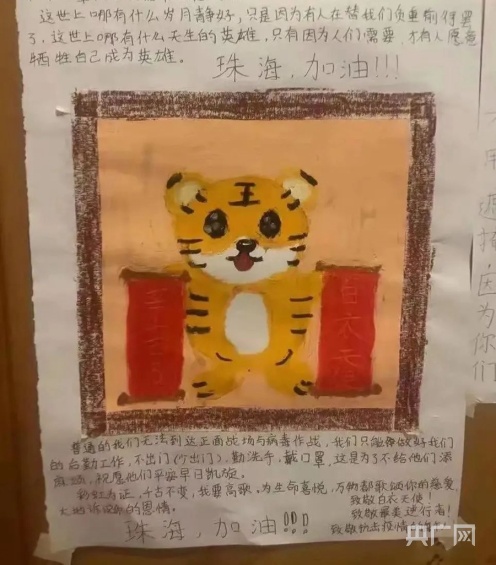 这世上哪有什么岁月静好，只是因为有人在替我们负重前行罢
了，这世上哪有什么天生的英雄，只有因为人们需要，才有人愿意
牺牲自己成为英雄。
珠海，加油!!!
王
白衣
普通的我们无法到达正面战场与病毒作战，我们只能做好我们
的后勤工作，不出门（少出门），勤洗手，戴口罩，这是为了不给他们添
麻烦，祝愿他们平安早日凯旋。
千古不变，我要高歌，为生命喜悦，万物都歌颂你的慈爱，
大地诉说你的恩情。
致敬白衣天使！
致敬最美逆行者！
珠海，加油!!!
致敬抗击疫情
央广网
用
因
为
你
们